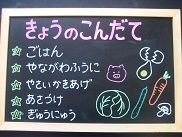 きょうのこんだて
ごはん
やながわふうに
やさいかきあげ
あさづけ
ぎゅうにゅう